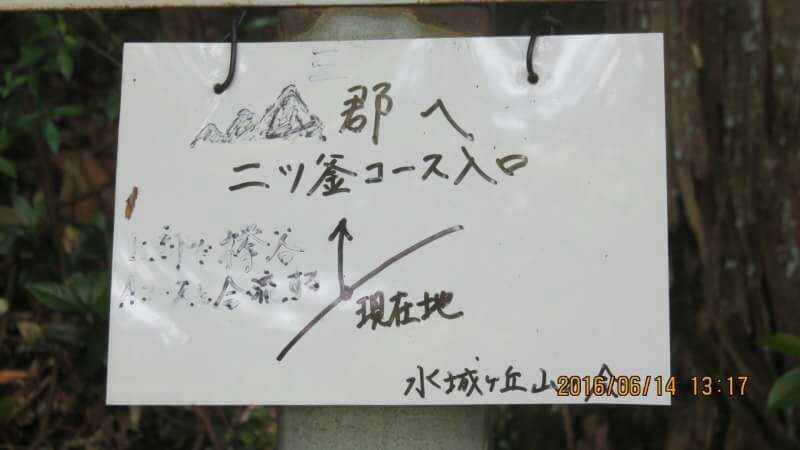 三
郡へ
二ツ釜コース入口
上部で欅谷
コースと合流する
現在地
水城ヶ丘山
2016/06/14 13:17